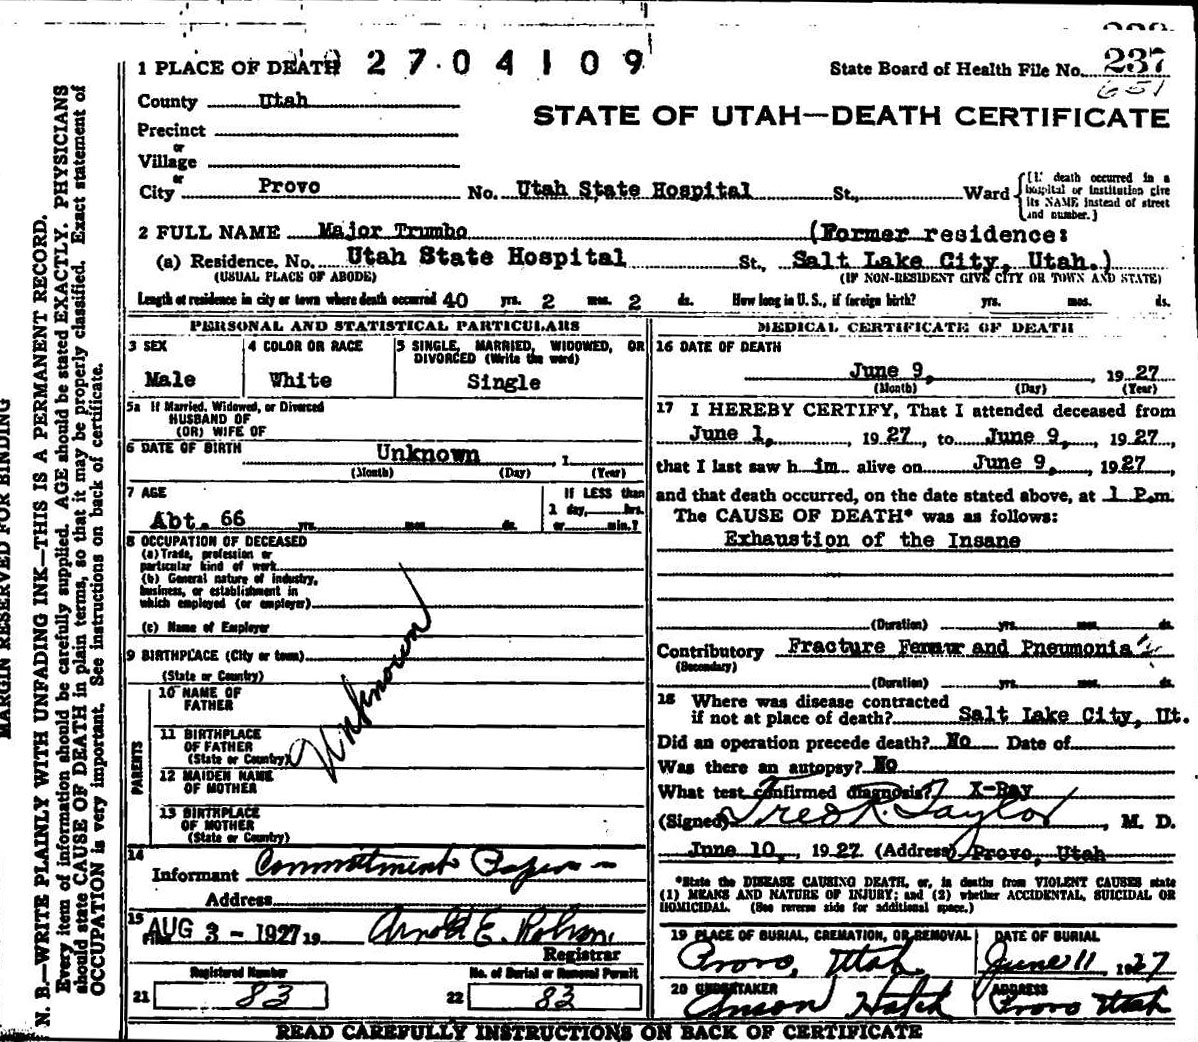 1 PLACE OF DEATH 2 7 0 4 1 0 9
State Board of Health File No. 237
651
County Utah
STATE OF UTAH—DEATH CERTIFICATE
Precinct
or
Village
or
City Provo No. Utah State Hospital St., Ward
[If death occurred in a
hospital or institution give
its NAME instead of street
and number.]
2 FULL NAME Major Trumbo (Former residence:
(a) Residence. No. Utah State Hospital St., Salt Lake City, Utah.)
(USUAL PLACE OF ABODE) (IF NON-RESIDENT GIVE CITY OR TOWN AND STATE)
Length of residence in city or town where death occurred 40 yrs. 2 mos. 2 ds. How long in U. S., if foreign birth? yrs. mos. ds.
PERSONAL AND STATISTICAL PARTICULARS
3 SEX
Male
4 COLOR OR RACE
White
5 SINGLE, MARRIED, WIDOWED, OR
DIVORCED (Write the word)
Single
5a If Married, Widowed, or Divorced
HUSBAND OF
(OR) WIFE OF
6 DATE OF BIRTH Unknown , 1
(Month) (Day) (Year)
7 AGE
Abt. 66 yrs. mos. ds.
If LESS than
1 day, hrs.
or min.?
8 OCCUPATION OF DECEASED
(a) Trade, profession or
particular kind of work
(b) General nature of industry,
business, or establishment in
which employed (or employer)
(c) Name of Employer
9 BIRTHPLACE (City or town)
(State or Country)
Unknown
PARENTS
10 NAME OF
FATHER
11 BIRTHPLACE
OF FATHER
(State or Country)
12 MAIDEN NAME
OF MOTHER
13 BIRTHPLACE
OF MOTHER
(State or Country)
14
Informant Commitment Papers
Address
15 Filed AUG 3 - 1927 19 Arnold E. Robison
Registrar
Registered Number No. of Burial or Removal Permit
21 83 22 83
MEDICAL CERTIFICATE OF DEATH
16 DATE OF DEATH
June 9, , 1927
(Month) (Day) (Year)
17 I HEREBY CERTIFY, That I attended deceased from
June 1, , 1927, to June 9, , 1927,
that I last saw h im alive on June 9, , 1927,
and that death occurred, on the date stated above, at 1 P.m.
The CAUSE OF DEATH* was as follows:
Exhaustion of the Insane
(Duration) yrs. mos. ds.
Contributory Fracture Femur and Pneumonia
(Secondary)
(Duration) yrs. mos. ds.
18 Where was disease contracted
if not at place of death? Salt Lake City, Ut.
Did an operation precede death? No Date of
Was there an autopsy? No
What test confirmed diagnosis? X-Ray
(Signed) Fred R. Taylor, M. D.
June 10, , 1927 (Address) Provo, Utah
*State the DISEASE CAUSING DEATH, or, in deaths from VIOLENT CAUSES state
(1) MEANS AND NATURE OF INJURY; and (2) whether ACCIDENTAL, SUICIDAL OR
HOMICIDAL. (See reverse side for additional space.)
19 PLACE OF BURIAL, CREMATION, OR REMOVAL
Provo, Utah.
DATE OF BURIAL
June 11, 1927
20 UNDERTAKER
Anson Hatch
ADDRESS
Provo Utah
READ CAREFULLY INSTRUCTIONS ON BACK OF CERTIFICATE
MARGIN RESERVED FOR BINDING
N. B.—WRITE PLAINLY WITH UNFADING INK—THIS IS A PERMANENT RECORD.
Every item of information should be carefully supplied. AGE should be stated EXACTLY. PHYSICIANS
should state CAUSE OF DEATH in plain terms, so that it may be properly classified. Exact statement of
OCCUPATION is very important. See instructions on back of certificate.